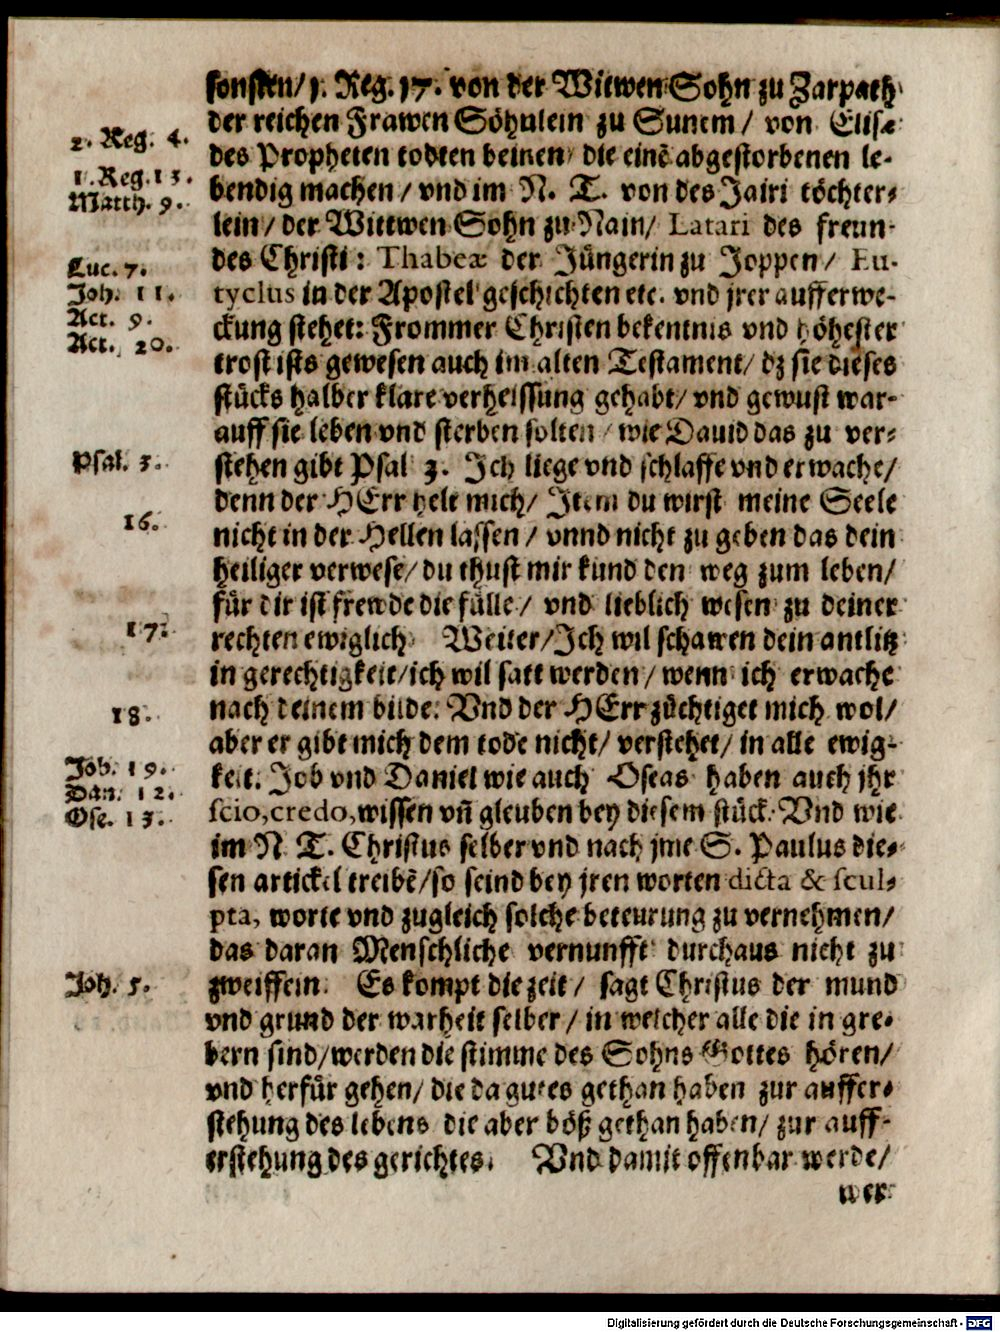 sonsten/ 1. Reg. 17. von der Witwen Sohn zu Zarpath
der reichen Frawen Söhnlein zu Sunem/ von Elisæ
2. Reg. 4.
des Propheten todten beinen/ die einē abgestorbenen le-
1. Reg. 13.
bendig machen/ vnd im N. T. von des Jairi töchter-
Matth. 9.
lein/ der Wittwen Sohn zu Nain/ Latari des freun-
des Christi: Thabeæ der Jüngerin zu Joppen/ Eu-
Luc. 7.
Joh. 11.
tyclus in der Apostel geschichten etc. vnd jrer aufferwe-
Act. 9.
ckung stehet: Frommer Christen bekentnis vnd höhester
Act. 20.
trost ists gewesen auch im alten Testament/ dz sie dieses
stücks halber klare verheissung gehabt/ vnd gewust war-
auff sie leben vnd sterben solten/ wie Dauid das zu ver-
Psal. 3.
stehen gibt Psal 3. Ich liege vnd schlaffe vnd erwache/
denn der HErr helt mich/ Item du wirst meine Seele
16.
nicht in der Hellen lassen/ vnnd nicht zu geben das dein
heiliger verwese/ du thust mir kund den weg zum leben/
für dir ist frewde die fülle/ vnd lieblich wesen zu deiner
17.
rechten ewiglich Weiter/ Ich wil schawen dein antlitz
in gerechtigkeit/ ich wil satt werden/ wenn ich erwache
18.
nach deinem bilde. Vnd der HErr züchtiget mich wol/
aber er gibt mich dem tode nicht/ verstehet/ in alle ewig-
Job. 19.
keit. Job vnd Daniel wie auch Oseas haben auch jhr
Dan. 12.
Ose. 13.
scio, credo, wissen vñ gleuben bey diesem stück. Vnd wie
im N T. Christus selber vnd nach jme S. Paulus die-
sen artickel treibē/ so seind bey jren worten dicta & scul-
pta, worte vnd zugleich solche beteurung zu vernehmen/
das daran Menschliche vernunfft durchaus nicht zu
Joh. 5.
zweiffeln. Es kompt die zeit/ sagt Christus der mund
vnd grund der warheit selber/ in welcher alle die in gre-
bern sind/ werden die stimme des Sohns Gottes hören/
vnd herfür gehen/ die da gutes gethan haben zur auffer-
stehung des lebens die aber böß gethan haben/ zur auff-
erstehung des gerichtes. Vnd damit offenbar werde/
wer
Digitalisierung gefördert durch die Deutsche Forschungsgemeinschaft - DFG